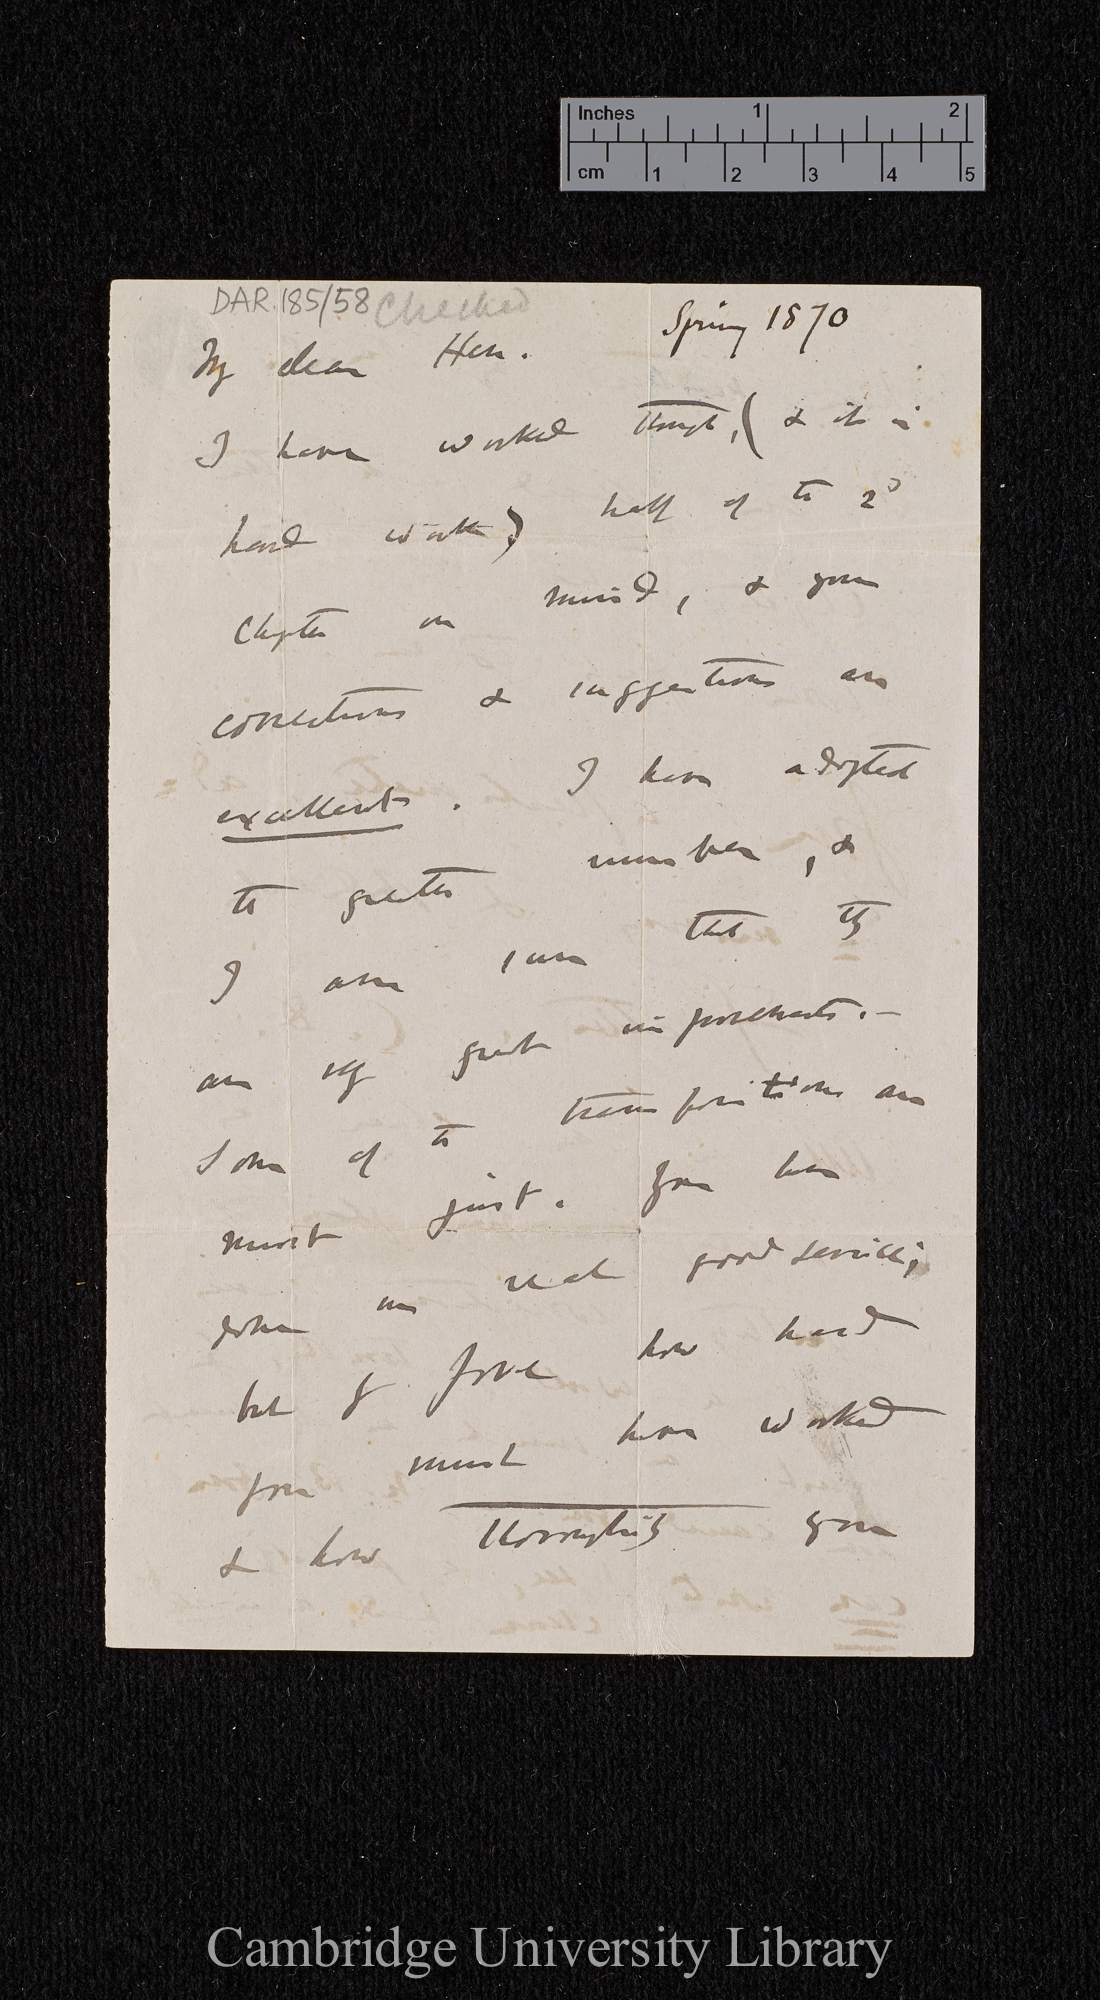 Inches 1 2
cm 1 2 3 4 5
DAR 185/58 Checked
Spring 1870
My dear Hen.
I have worked through, (& it is
hard work) half of the 2d
Chapter on mind, & your
corrections & suggestions are
excellent. I have adopted
the greater number, &
I am sure that they
are very great improvements.—
Some of the transpositions are
most just. You have
done me real good service;
but by Jove how hard
you must have worked
& how thoroughly you
Cambridge University Library